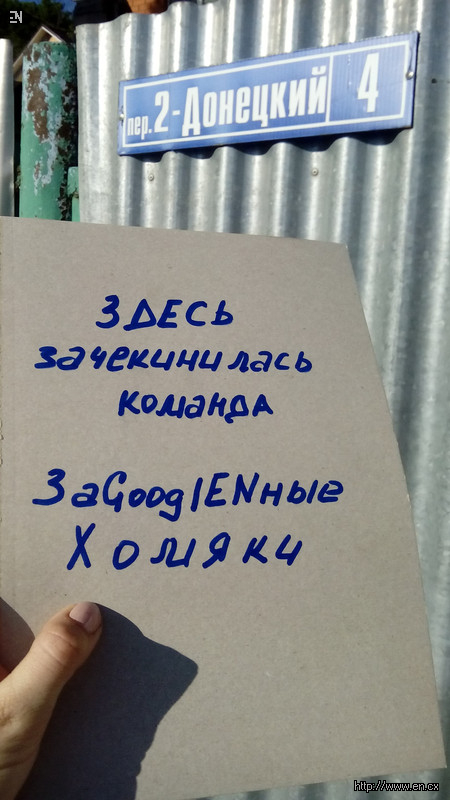 EN
пер. 2-Донецкий 4
ЗДЕСЬ
зачекинилась
команда
ЗаGooglENные
Хомяки
http://www.en.cx